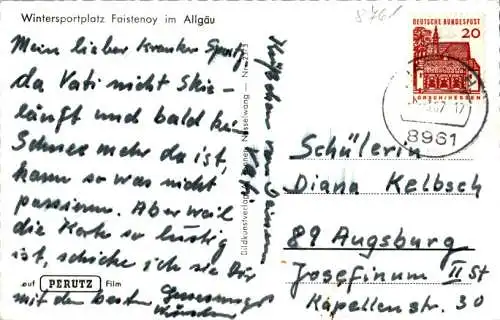 Wintersportplatz Faistenoy im Allgäu
Mein lieber kranker Spatz,
da Vati nicht Ski-
läuft und bald kein
Schnee mehr da ist,
kann so was nicht
passieren. Aber weil
die Karte so lustig
ist, schicke ich sie Dir
mit den besten Genesungs
wünschen
auf PERUTZ Film
Küßchen von Deinem
Vati
Bildkunstverlag Nesselwang — Nr.
8761
DEUTSCHE BUNDESPOST
20
LORSCH/HESSEN
67-17
8961
Schülerin
Diana Kelbsch
89 Augsburg
Josefinum II St
Kapellenstr. 30